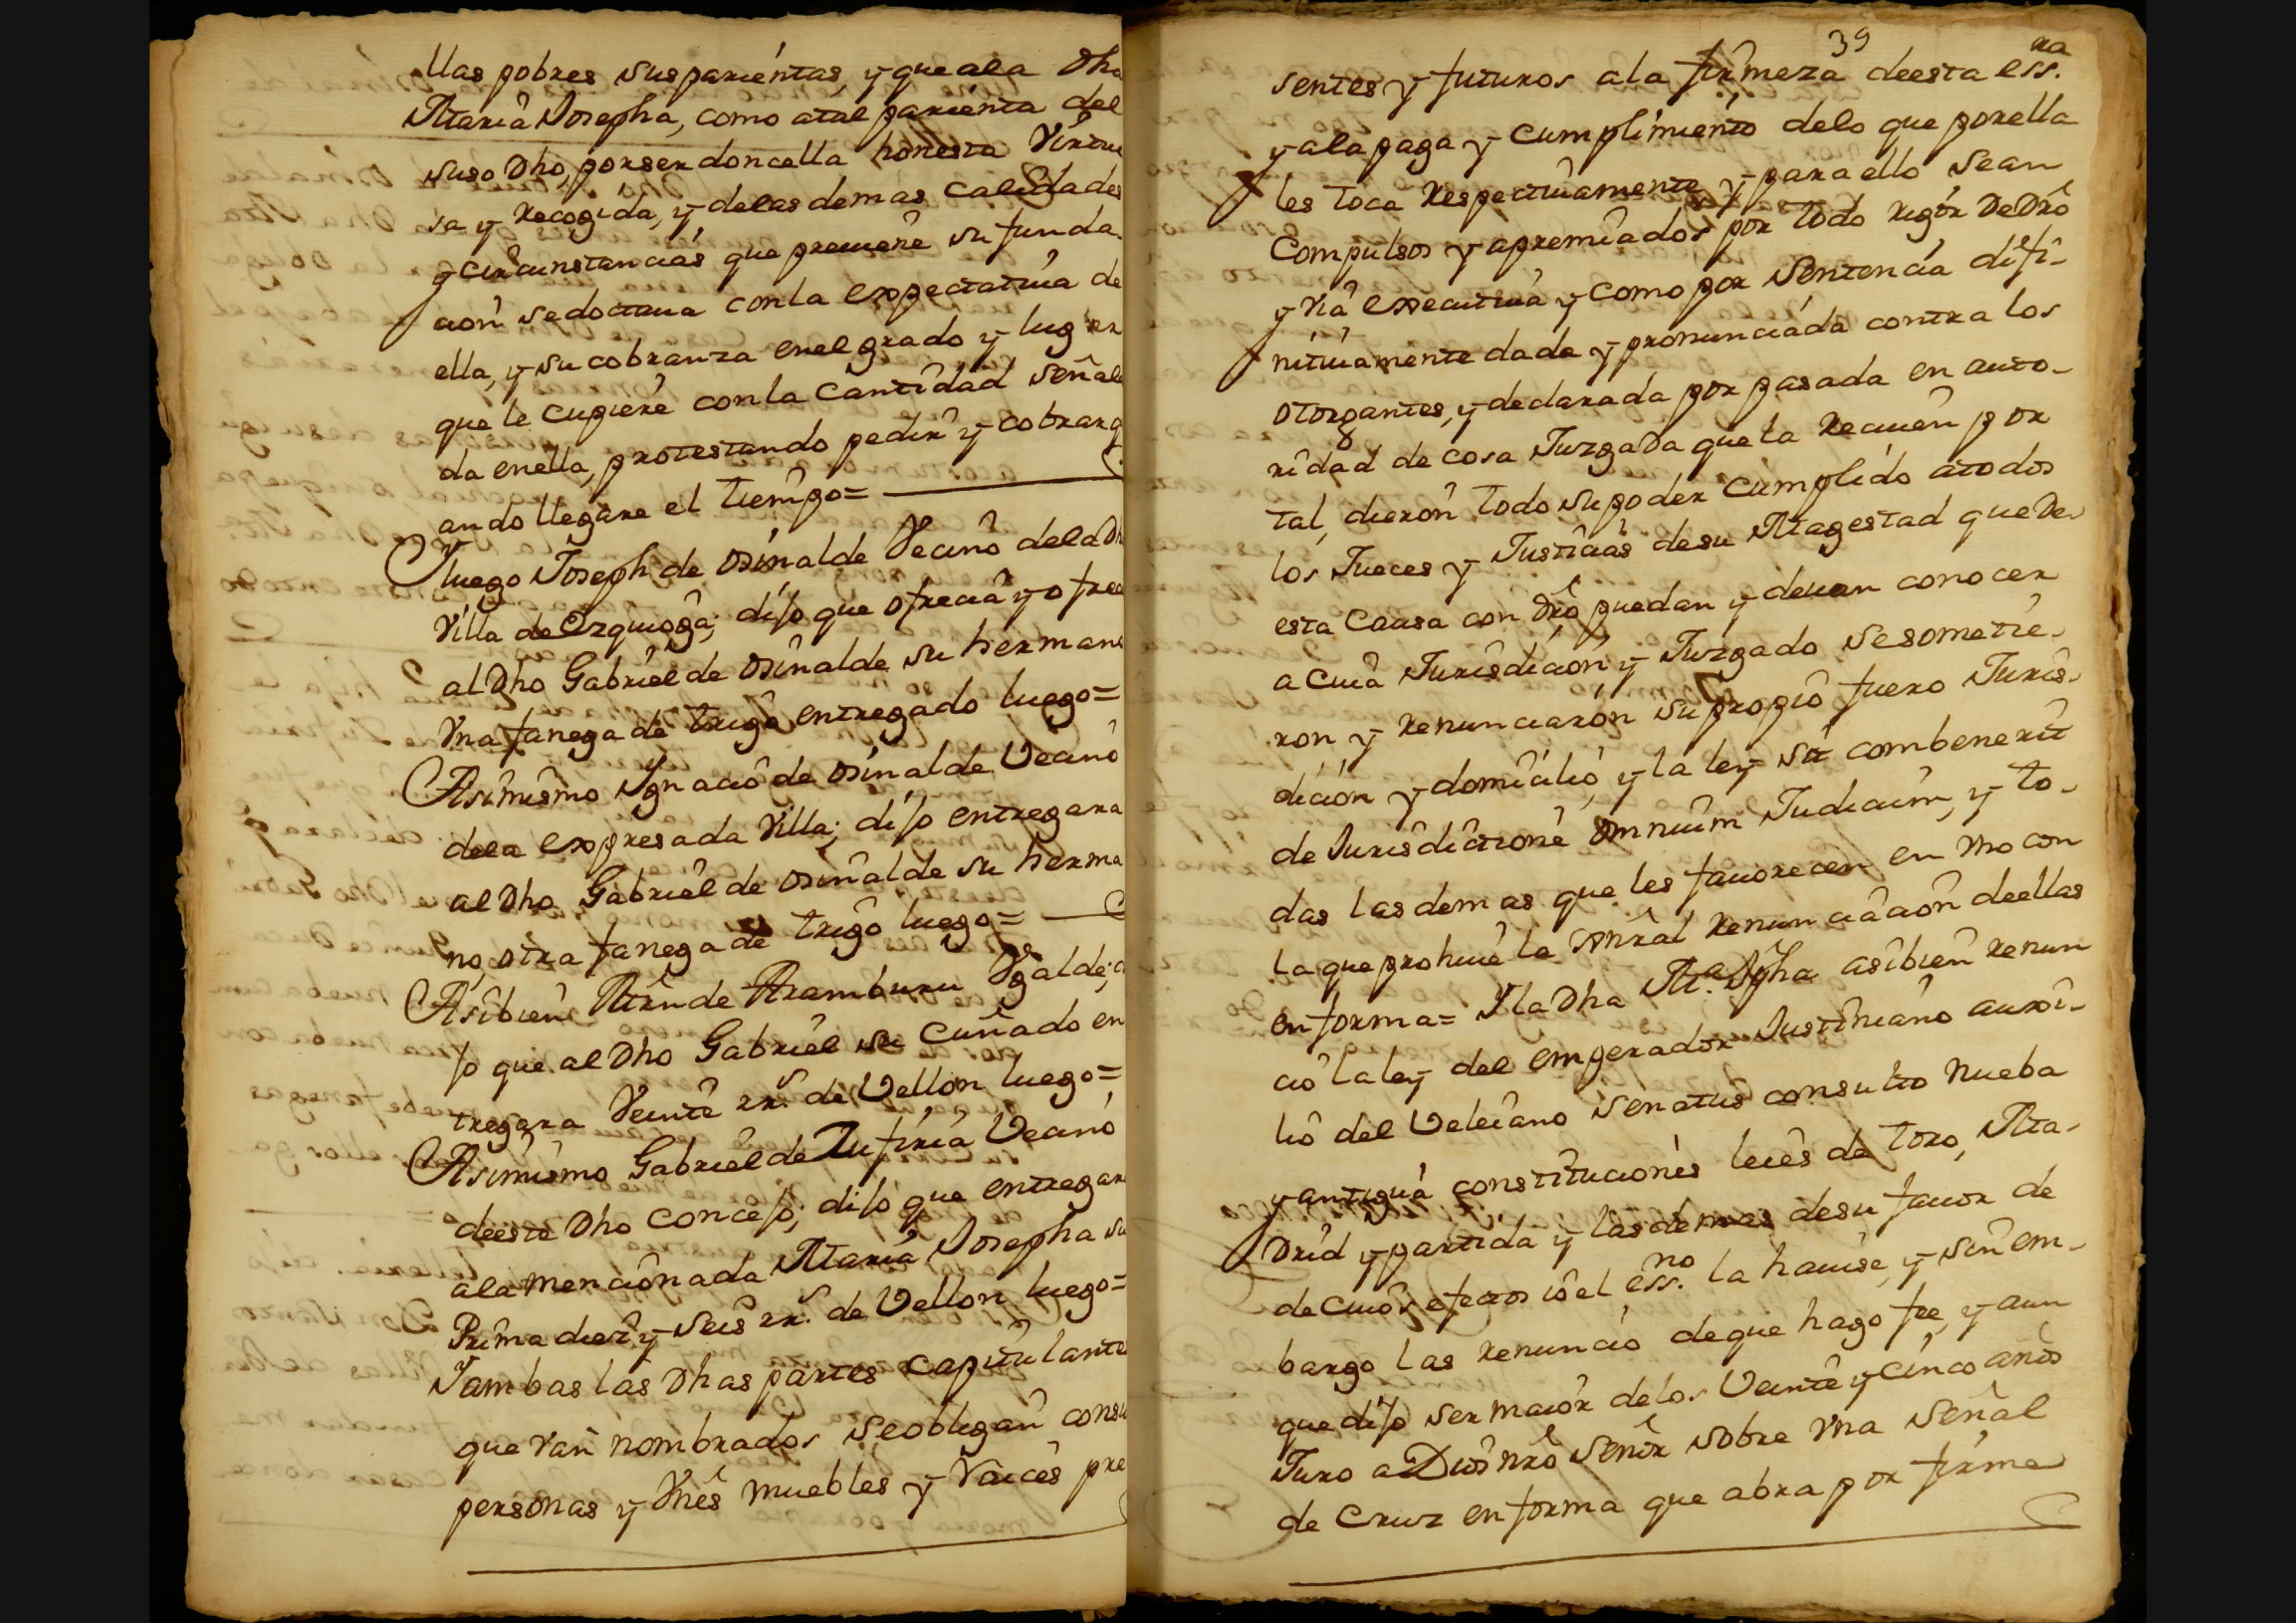 llas pobres sus parientas, y que ala Dha
Maria Josepha, como atal parienta del
suso Dho, por ser doncella honesta Virtuo
sa y Recogida, y delas demas Calidades
y circunstancias que preuiene su funda.
cion se doctaua con la expectatiua de
ella, y su cobranza enel grado y lugar
que le cupiere con la Cantidad señala
da enella, protestando pedir y cobrar q
ando llegare el tiempo=
Yluego Joseph de osinalde Vecino dela Dha
Villa de Ezquioga; dijo que ofrecia y ofrec
al Dho Gabriel de osinalde su hermano
Vna fanega de trigo entregado luego=
Asimismo Ygnacio de osinalde Vecino
dela expresada Villa; dijo entregara
al Dho Gabriel de osinalde su herma
no, otra fanega de trigo luego=
Asibien Mrn de Aramburu Vgalde; di
jo que al Dho Gabriel su Cuñado en
tregara Veinte rrs. de Vellon luego=
Asimismo Gabriel de Zufiria Vecino
deeste Dho Concejo; dijo que entregara
ala mencionada Maria Josepha su
Prima diez y seis rrs. de Vellon luego=
Y ambas las Dhas partes Capitulantes
que van nombrados se obligan con su
personas y Vnes muebles y Raices pre
39
sentes y futuros ala firmeza deesta essra.
y ala paga y cumplimiento delo que por ella
les toca Respectiuamente, y para ello sean
Compulsos y apremiados por todo rigor De Dro
y Via executiua y como por Sentencia difi-
nitiuamente dada y pronunciada contra los
otorgantes, y declarada por pasada en auto-
ridad de cosa Juzgada que la Reciuen por
tal, dieron todo su poder Cumplido atodos
los Jueces y Justicias desu Magestad que De
esta Causa con Dro puedan y deuan conocer
a cuia Jurisdicion y Juzgado se sometie-
ron y Renunciaron su propio fuero Juris-
dicion y domicilio, y la ley sit combenerit
de Jurisdictione omnium Judicum, y to-
das las demas que les fauorecen en Vno con
la que prohiue la Genral Renunciacion deellas
en forma= Y la Dha Ma. Jpha asibien renun
cio la ley del emperador Justiniano auxi-
lio del Veleiano Senatus consulto nueba
y antigua constituciones leies de toro, Ma-
drid y partida y las demas desu fauor de
de cuios efectos io el essno. la hauise, y sin em-
bargo las renuncio deque hago fee, y aun
que dijo ser maior delos Veinte y cinco años
Juro a Dios nro Señor sobre vna Señal
de Cruz en forma que abra por firme